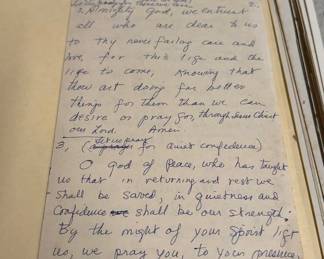 2.
2. Almighty God, we entrust
all who are dear to us
to thy never failing care and
love, for this life and the
life to come, knowing that
thou art doing far better
things for them than we can
desire or pray for, through Jesus Christ
our Lord. Amen
Let us pray
3, ( for quiet confidence)
O god of peace, who has taught
us that in returning and rest we
shall be saved, in quietness and
Confidence shall be our strength:
By the might of your Spirit lift
us, we pray you, to your presence,